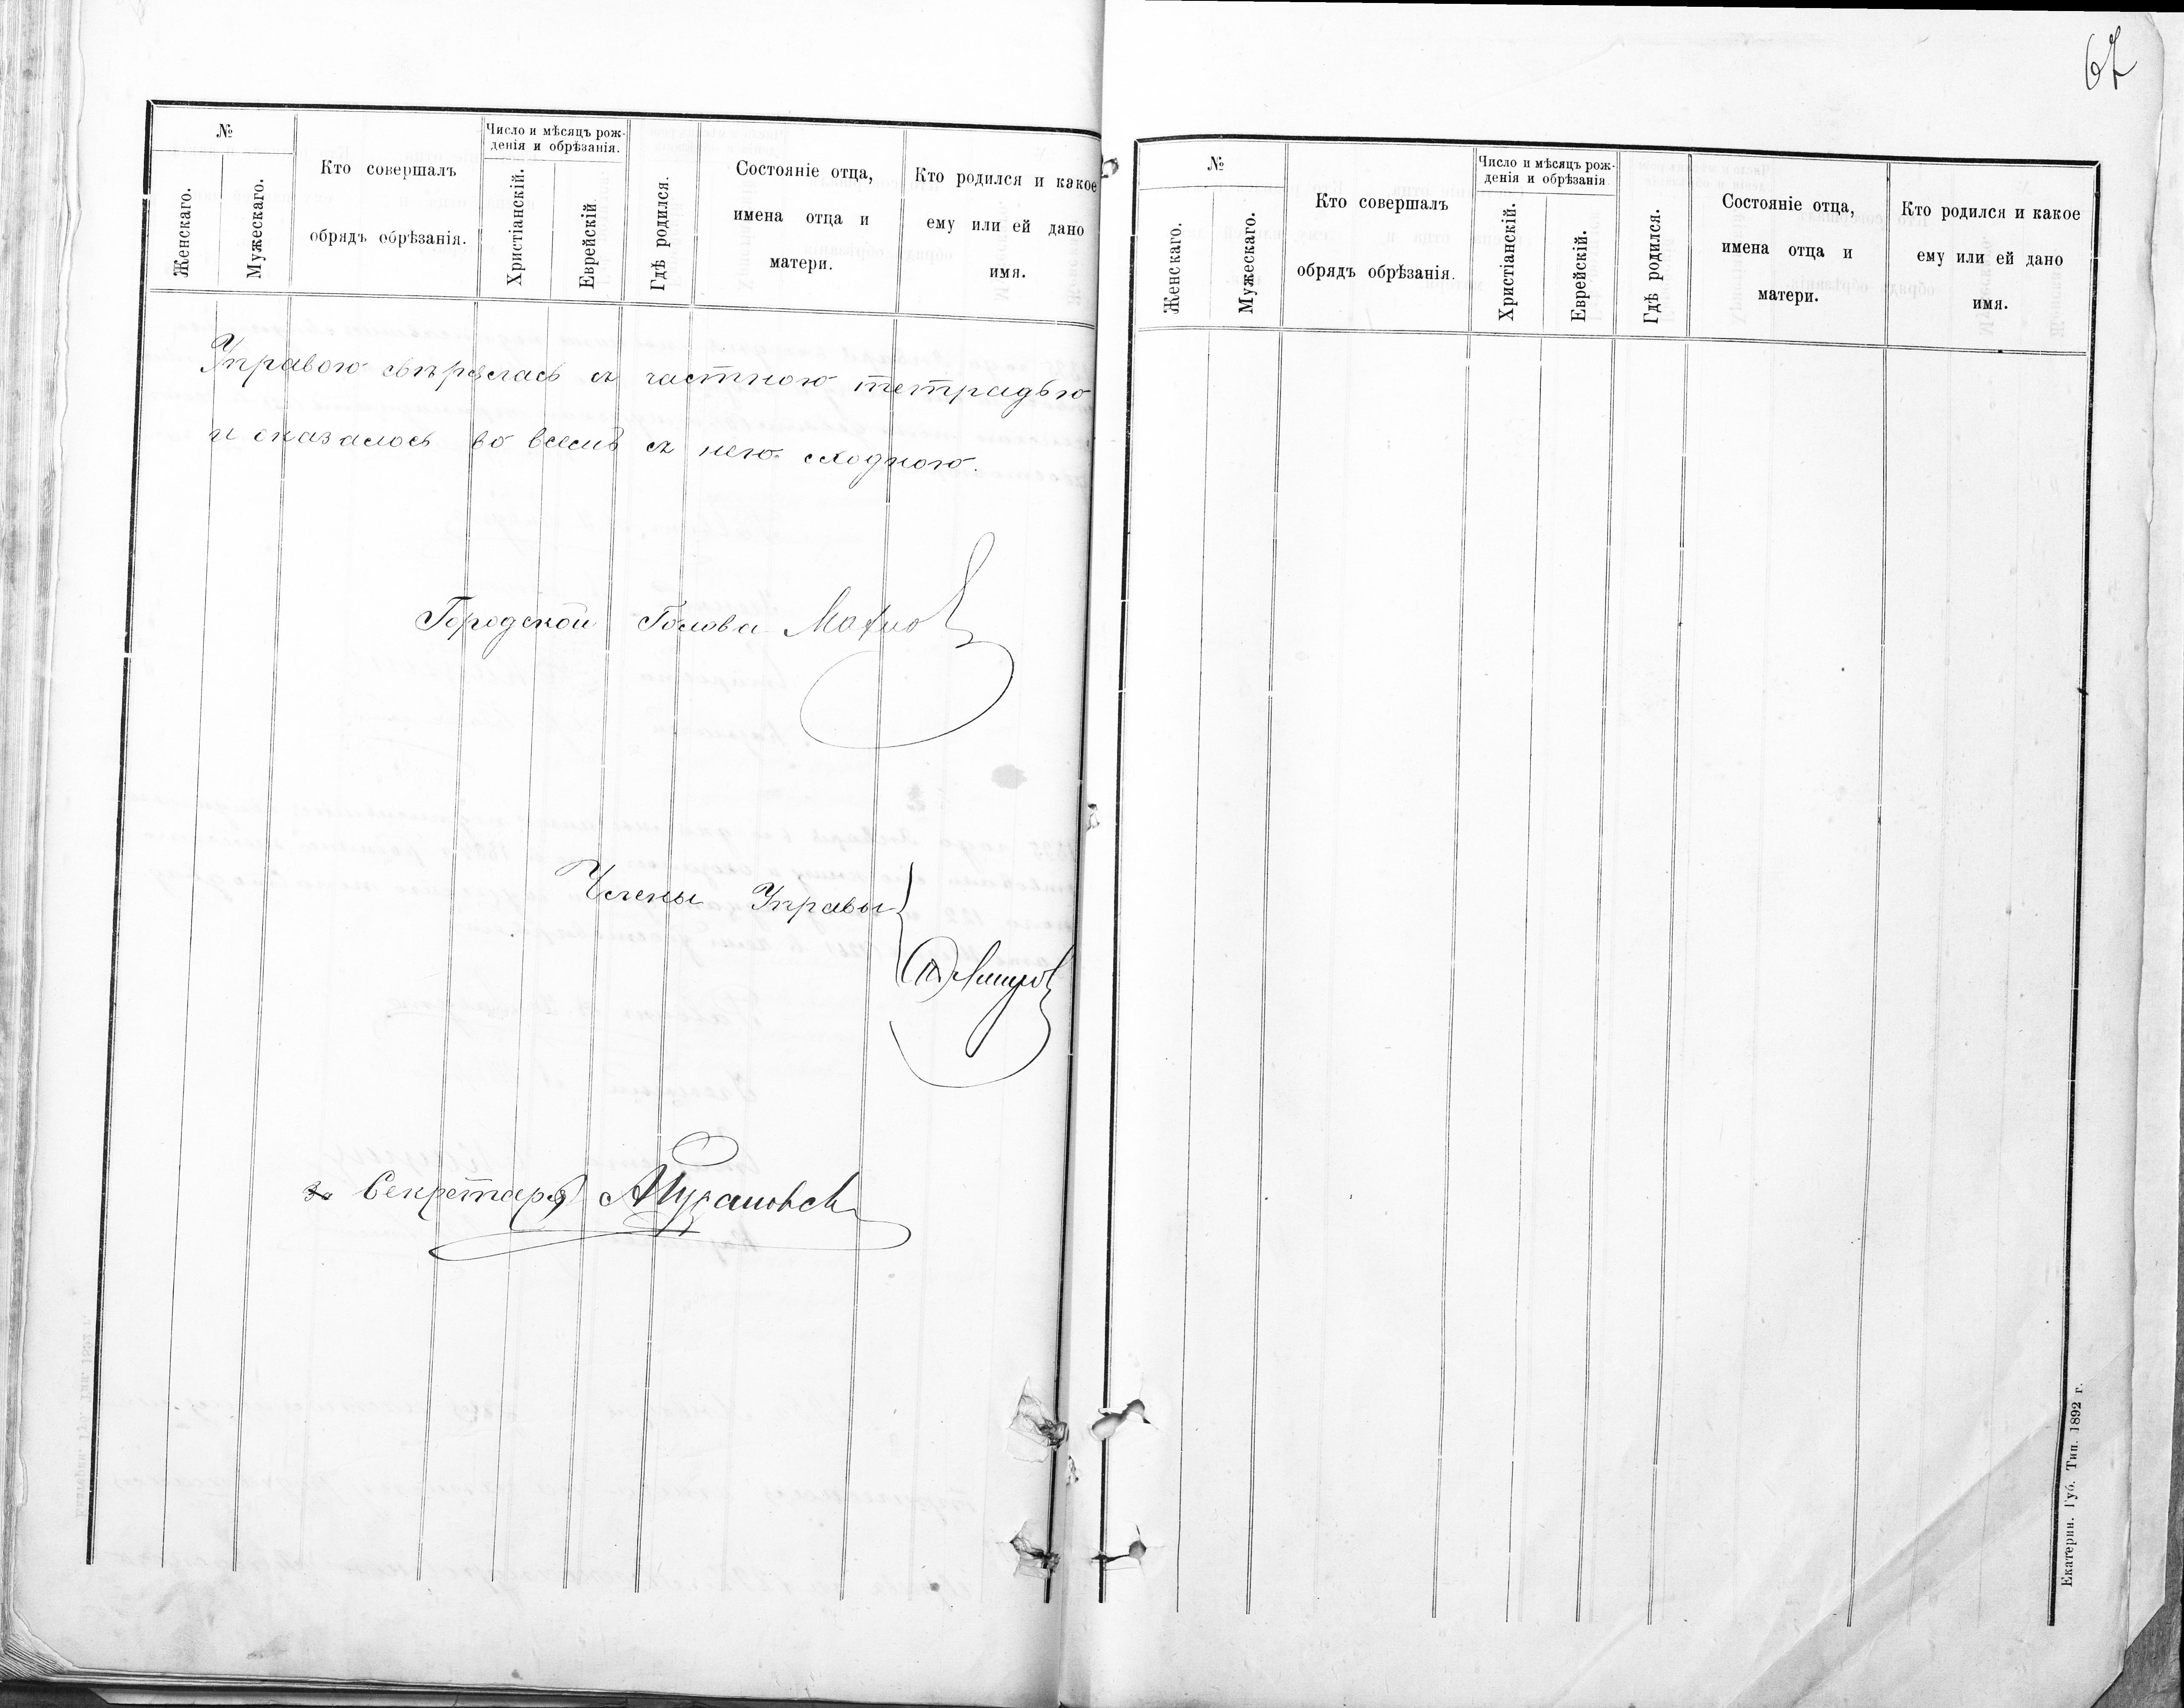 №
Женскаго.
Мужескаго.
Кто совершалъ
обрядъ обрѣзанія.
Число и мѣсяцъ рож-
денія и обрѣзанія.
Христіанскій.
Еврейскій
Гдѣ родился.
Состояніе отца,
имена отца и
матери.
Кто родился и какое
ему или ей дано
имя.
Управою свѣрялась съ частною тетрадью
и оказалось во всемъ съ нею сходною.
Городской Голова
Члены Управы
за Секретаря
67
№
Женскаго.
Мужескаго.
Кто совершалъ
обрядъ обрѣзанія.
Число и мѣсяцъ рож-
денія и обрѣзанія
Христіанскій.
Еврейскій.
Гдѣ родился.
Состояніе отца,
имена отца и
матери.
Кто родился и какое
ему или ей дано
имя.
Екатерин. Губ. Тип. 1892 г.